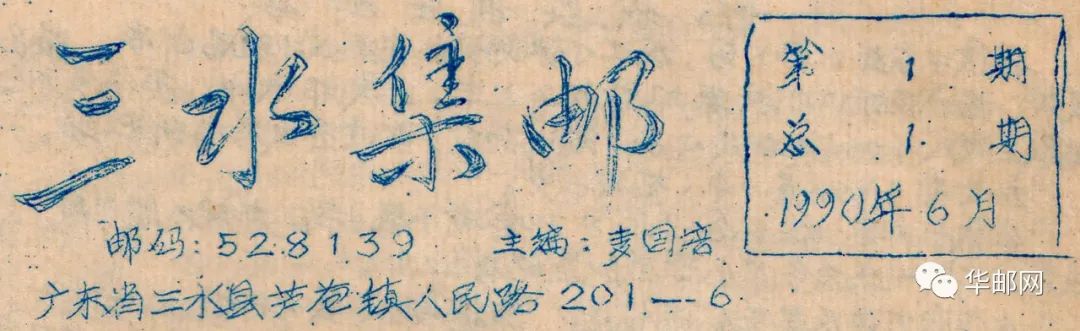 三水集邮
第 1 期
总 1. 期
1990年6月
邮码:528139 主编:麦国培
广东省三水县芦苞镇人民路201—6
华邮网